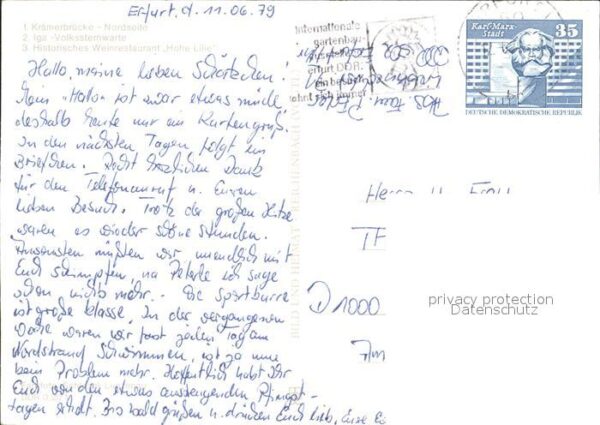 Erfurt, d. 11.06.79
1. Krämerbrücke - Nordseite
2. iga - Volkssternwarte
3. Historisches Weinrestaurant „Hohe Lilie"
Hallo, meine lieben Schätzchen!
"Hallo" ist zwar etwas müde,
deshalb heute nur ein Kartengruß.
In den nächsten Tagen folgt ein
Briefchen. Recht herzlichen Dank
für den Telefonanruf u. Euren
lieben Besuch. Trotz der großen Hitze
waren es wieder schöne Stunden.
Ansonsten müßten wir unendlich mit
Euch schimpfen, na Peterle ich sage
schon nichts mehr. - Die
ist große Klasse. In der vergangenen
Woche waren wir fast jeden Tag am
Nordstrand schwimmen, ist ja nun
kein Problem mehr. Hoffentlich habt Ihr
Euch von den etwas anstrengenden Pfingst-
tagen erholt. Bis bald grüßen u. drücken Euch lieb, Eure
Internationale
Gartenbau-
erfurt DDR
ein
lohnt sich immer
Karl-Marx-
Stadt
35
DEUTSCHE DEMOKRATISCHE REPUBLIK
BILD UND HEIMAT REICHENBACH
Herrn u. Frau
D 1000
privacy protection
Datenschutz